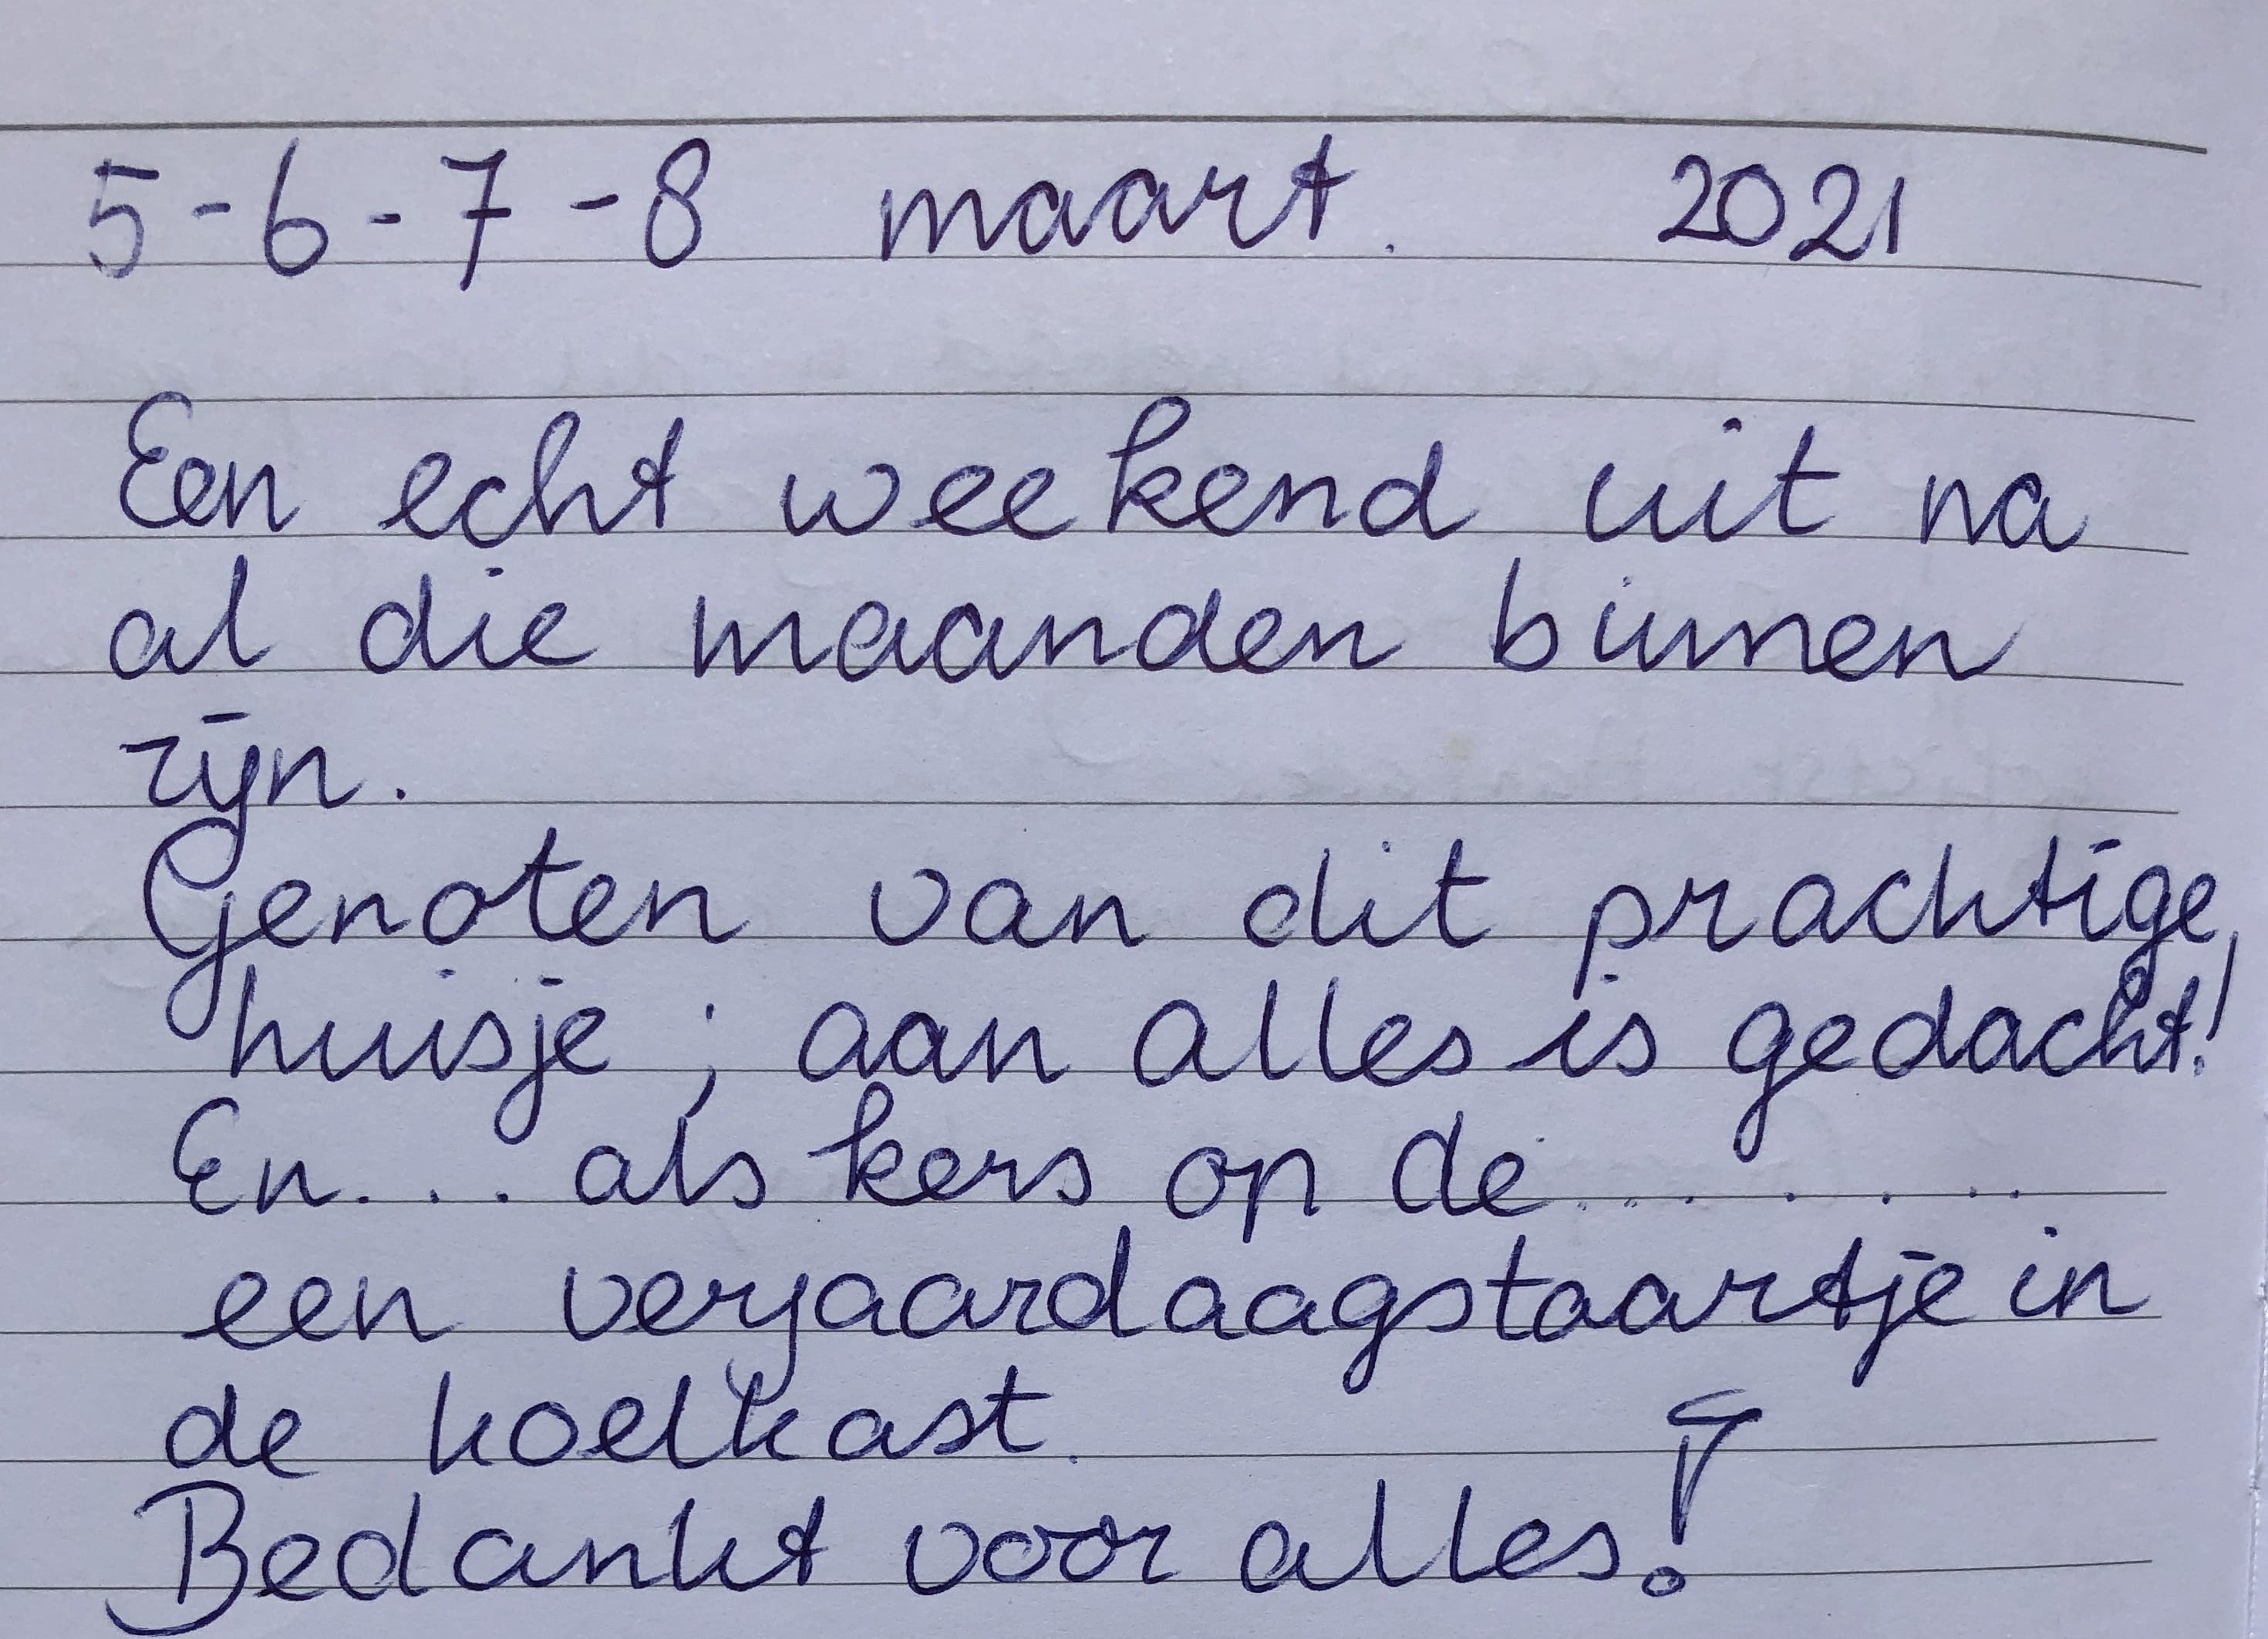 5-6-7-8 maart. 2021
Een echt weekend uit na
al die maanden binnen
zijn.
Genoten van dit prachtige
huisje; aan alles is gedacht!
En... als kers op de.........
een verjaardaagstaartje in
de koelkast.
Bedankt voor alles!